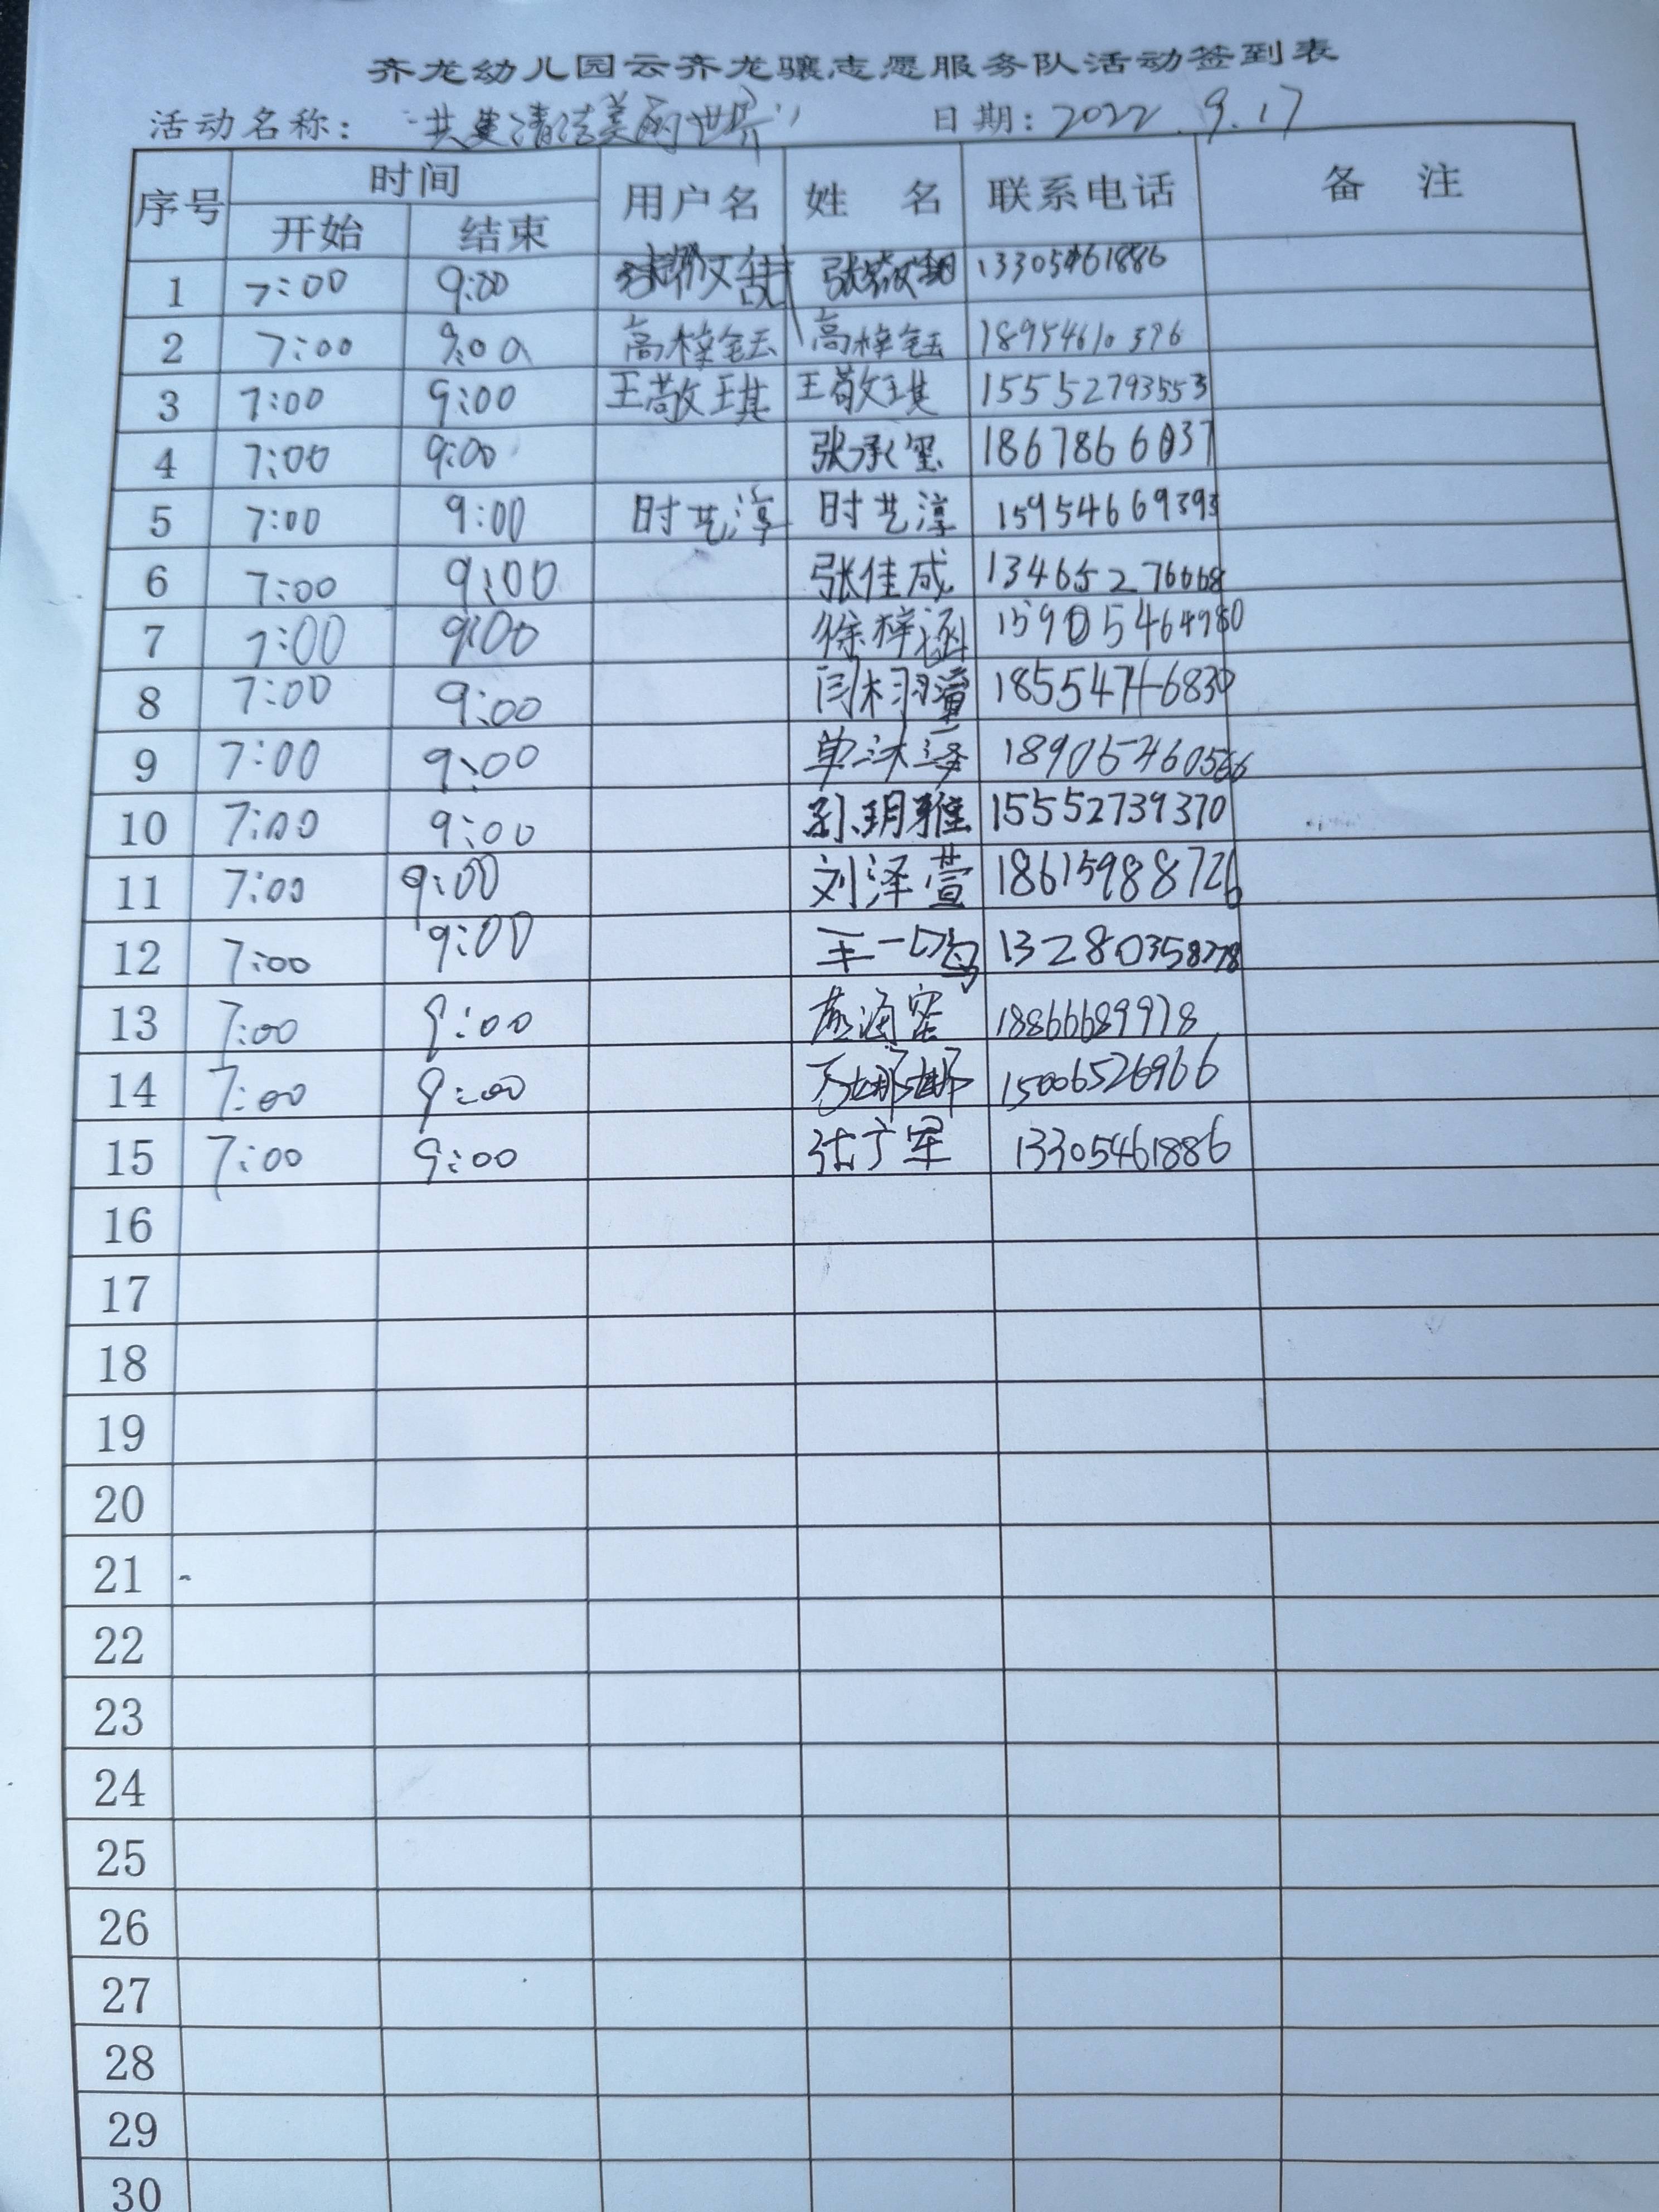 齐龙幼儿园云齐龙骧志愿服务队活动签到表
活动名称： “共建清洁美丽世界” 日期：2022.9.17
序号 时间 用户名 姓 名 联系电话 备 注
开始 结束
1 7:00 9:00 13305461886
2 7:00 9:00 高梓钰 高梓钰 18954610376
3 7:00 9:00 王敬琪 王敬琪 15552793553
4 7:00 9:00 张承玺 1867866037
5 7:00 9:00 时艺淳 时艺淳 15954669393
6 7:00 9:00 张佳成
7 7:00 9:00 徐梓涵 15905464980
8 7:00 9:00 18554746830
9 7:00 9:00 单沐泽 18905460566
10 7:00 9:00 孙玥雅 15552739370
11 7:00 9:00 刘泽萱 18615988726
12 7:00 9:00 王一鸣 13280358278
13 7:00 9:00 18866689978
14 7:00 9:00 15006526966
15 7:00 9:00 张广军 13305461886
16
17
18
19
20
21
22
23
24
25
26
27
28
29
30